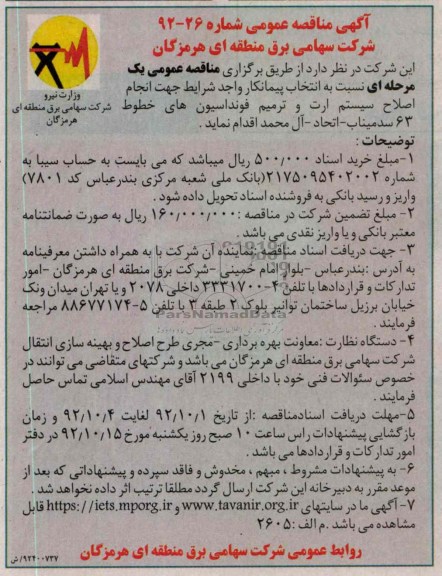 آگهی مناقصه عمومی شماره ۲۶-۹۲
شرکت سهامی برق منطقه ای هرمزگان
وزارت نیرو
شرکت سهامی برق منطقه ای
هرمزگان
این شرکت در نظر دارد از طریق برگزاری مناقصه عمومی یک
مرحله ای نسبت به انتخاب پیمانکار واجد شرایط جهت انجام
اصلاح سیستم ارت و ترمیم فونداسیون های خطوط
۶۳ سدمیناب-اتحاد-آل محمد اقدام نماید.
توضیحات:
۱-مبلغ خرید اسناد ۵۰۰/۰۰۰ ریال میباشد که می بایست به حساب سیبا به
شماره ۲۱۷۵۰۹۵۴۰۲۰۰۲(بانک ملی شعبه مرکزی بندرعباس کد ۷۸۰۱)
واریز و رسید بانکی به فروشنده اسناد تحویل داده شود.
۲- مبلغ تضمین شرکت در مناقصه :۱۶۰/۰۰۰/۰۰۰ ریال به صورت ضمانتنامه
معتبر بانکی و یا واریز نقدی می باشد.
۳- جهت دریافت اسناد مناقصه، نماینده آن شرکت با به همراه داشتن معرفینامه
به آدرس :بندرعباس -بلوار امام خمینی -شرکت برق منطقه ای هرمزگان -امور
تدارکات و قراردادها با تلفن ۴-۳۳۳۱۷۰۰ داخلی ۲۰۷۸ و یا تهران میدان ونک
خیابان برزیل ساختمان توانیر بلوک ۲ طبقه ۳ با تلفن ۵-۸۸۶۷۷۱۷۴ مراجعه
فرمایند.
ParsNamadData
۴- دستگاه نظارت :معاونت بهره برداری -مجری طرح اصلاح و بهینه سازی انتقال
شرکت سهامی برق منطقه ای هرمزگان می باشد و شرکتهای متقاضی می توانند در
خصوص سئوالات فنی خود با داخلی ۲۱۹۹ آقای مهندس اسلامی تماس حاصل
فرمایند.
۵-مهلت دریافت اسنادمناقصه :از تاریخ ۹۲/۱۰/۱ لغایت ۹۲/۱۰/۴ و زمان
بازگشایی پیشنهادات راس ساعت ۱۰ صبح روز یکشنبه مورخ ۹۲/۱۰/۱۵ در دفتر
امور تدارکات و قراردادها می باشد.
۶- به پیشنهادات مشروط ، مبهم ، مخدوش و فاقد سپرده و پیشنهاداتی که بعد از
موعد مقرر به دبیرخانه این شرکت ارسال گردد مطلقا ترتیب اثر داده نخواهد شد.
۷-آگهی ما در سایتهای www.tavanir.org.ir و https://iets.mporg.ir قابل
مشاهده می باشد .م الف :۲۶۰۵
روابط عمومی شرکت سهامی برق منطقه ای هرمزگان
۹۲۴۰۰۷۳۷/ش